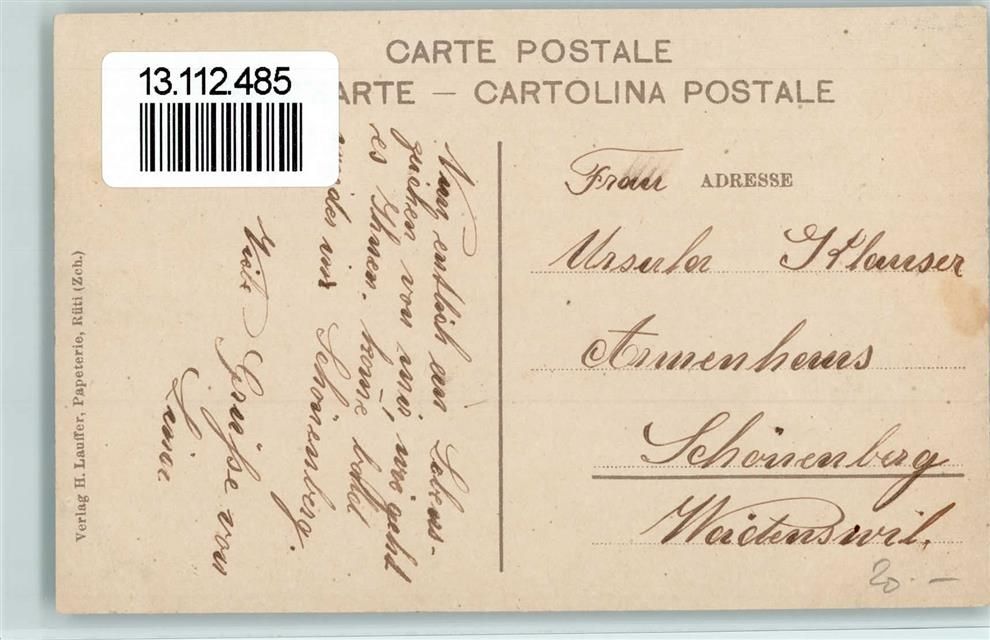 13.112.485
CARTE POSTALE
ARTE – CARTOLINA POSTALE
Frau ADRESSE
Ursula Klauser
Armenhaus
Schönenberg
Wädenswil.
Nun entlich ein Lebens-
zeichen von mir wie geht
es Ihnen. kome bald
wieder ins
Schönenberg.
Viele Grüsse von
Luise
Verlag H. Lauffer, Papeterie, Rüti (Zch.)
20.–